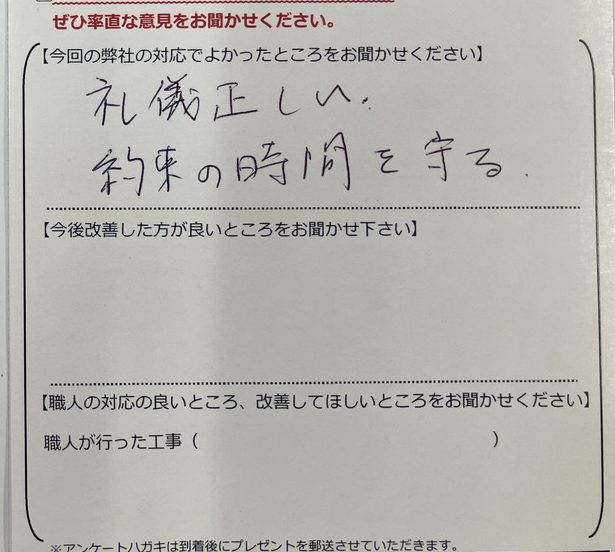 ぜひ率直な意見をお聞かせください。
【今回の弊社の対応でよかったところをお聞かせください】
礼儀正しい.
約束の時間を守る.
【今後改善した方が良いところをお聞かせ下さい】
【職人の対応の良いところ、改善してほしいところをお聞かせください】
職人が行った工事（　　　　　　　　　　　　　　　　）
※アンケートハガキは到着後にプレゼントを郵送させていただきます。